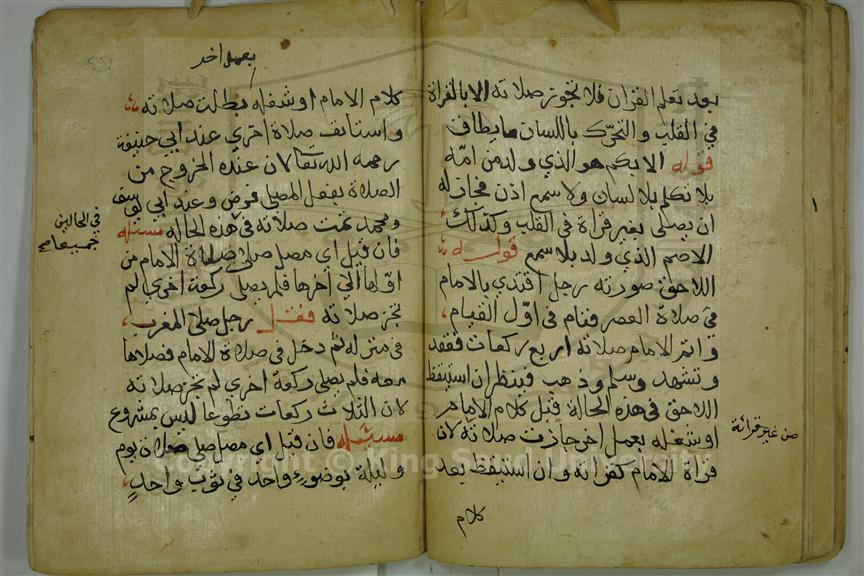 بعد تعلم القران فلا تجوز صلاته الا بالقراة
في القلب والتحرك باللسان ما يطاق
قوله الابكم هو الذي ولد من امه
بلا تكلم بلا لسان ولا سمع اذن فجاز له
ان يصلي بغير قراة في القلب وكذلك
الاصم الذي ولد بلا سمع قوله
اللاحق صورته رجل اقتدي بالامام
في صلاة العصر فنام في اول القيام
واتم الامام صلاته اربع ركعات فقعد
وتشهد وسلم وذهب فينظر ان استيقظ
اللاحق في هذه الحالة قبل كلام الامام
او شغله بعمل اخر جازت صلاته لان
من غير قرائة
قراة الامام كقراته وان استيقظ بعد
كلام
بعمل اخر
كلام الامام او شغله بطلت صلاته
واستانف صلاة اخري عند ابي حنيفة
رحمه الله تعالى لان عنده الخروج من
الصلاة بفعل المصلي فرض وعند ابي يوسف
ومحمد تمت صلاته في هذه الحالة مسئله
في الحالين
جميعا صح
فان قيل اي مصل صلي صلاة الامام من
اولها الي اخرها فلم يصلي ركعة اخري لم
تجز صلاته فقل رجل صلي المغرب
في منزله ثم دخل في صلاة الامام فصلاها
معه فلم يصلي ركعة اخري لم تجز صلاته
لان الثلاث ركعات تطوعا ليس بمشروع
مسئله فان قيل اي مصل صلي صلاة يوم
وليلة بوضوء واحد في ثوب واحد
Copyright © King Saud University